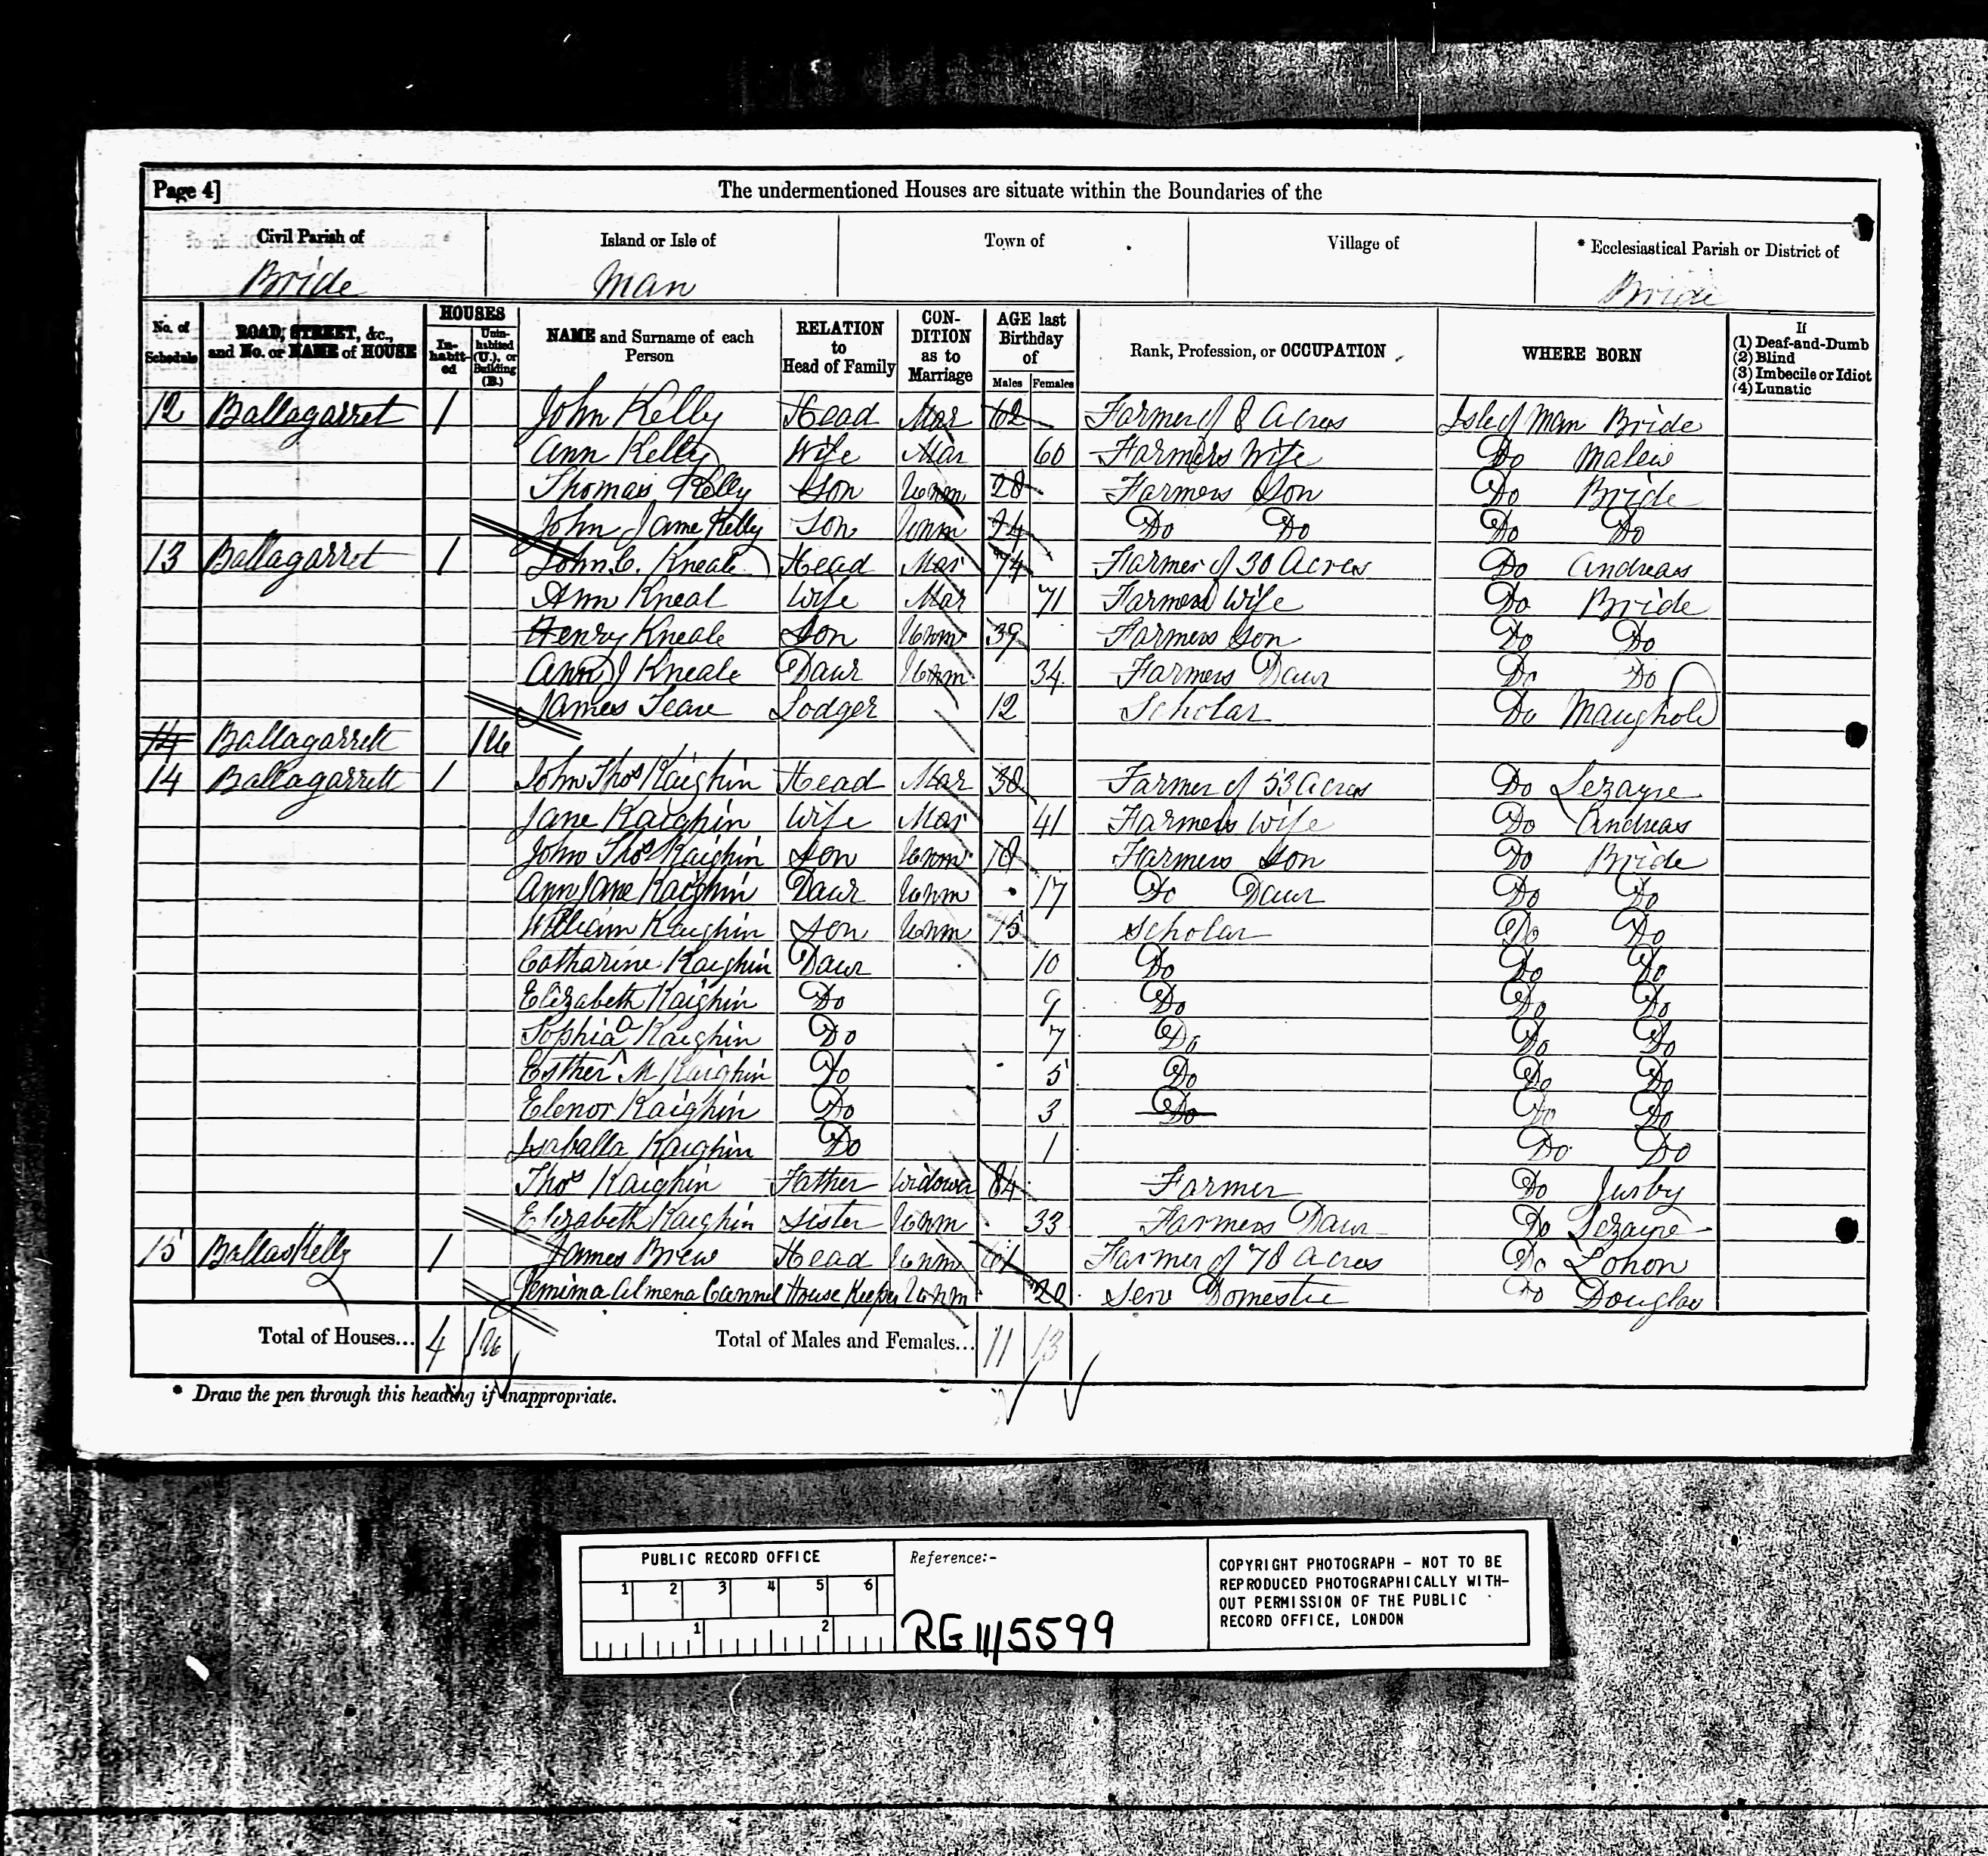 Page 4]
The undermentioned Houses are situate within the Boundaries of the
Civil Parish of Island or Isle of Town of Village of * Ecclesiastical Parish or District of
Bride Man Bride
No. of Schedule ROAD, STREET, &c., and No. or NAME of HOUSE HOUSES In-habit-ed Unin-habited (U.), or Building (B.) NAME and Surname of each Person RELATION to Head of Family CON-DITION as to Marriage AGE last Birthday of Males Females Rank, Profession, or OCCUPATION WHERE BORN If (1) Deaf-and-Dumb (2) Blind (3) Imbecile or Idiot (4) Lunatic
12 Ballagarret 1 John Kelly Head Mar 62 Farmer of 8 Acres Isle of Man Bride
Ann Kelly Wife Mar 60 Farmers Wife Do Malew
Thomas Kelly Son Unm 28 Farmers Son Do Bride
John Jame Kelly Son Unm 24 Do Do Do Do
13 Ballagarret 1 John C. Kneale Head Mar 74 Farmer of 30 Acres Do Andreas
Ann Kneal Wife Mar 71 Farmers Wife Do Bride
Henry Kneale Son Unm 39 Farmers Son Do Do
Ann J Kneale Daur Unm 34 Farmers Daur Do Do
James Teare Lodger 12 Scholar Do Maughold
14 Ballagarrett 1U
14 Ballagarrett 1 John Thos Kaighin Head Mar 38 Farmer of 53 Acres Do Lezayre
Jane Kaighin Wife Mar 41 Farmers Wife Do Andreas
John Thos Kaighin Son Unm 18 Farmers Son Do Bride
Ann Jane Kaighin Daur Unm 17 Do Daur Do Do
William Kaighin Son Unm 15 Scholar Do Do
Catharine Kaighin Daur 10 Do Do Do
Elizabeth Kaighin Do 9 Do Do Do
Sophia A Kaighin Do 7 Do Do Do
Esther M Kaighin Do 5 Do Do Do
Elenor Kaighin Do 3 Do Do Do
Isaballa Kaighin Do 1 Do Do
Thos Kaighin Father Widower 84 Farmer Do Jurby
Elizabeth Kaighin Sister Unm 33 Farmers Daur Do Lezayre
15 Ballaskelly 1 James Brew Head Unm 61 Farmer of 78 Acres Do Lonon
Jemima Almena Cannel House Keeper Unm 20 Serv Domestic Do Douglas
Total of Houses... 4 1U Total of Males and Females... 11 13
* Draw the pen through this heading if inappropriate.
PUBLIC RECORD OFFICE
1 2 3 4 5 6
1 2
Reference:-
RG 11/5599
COPYRIGHT PHOTOGRAPH - NOT TO BE
REPRODUCED PHOTOGRAPHICALLY WITH-
OUT PERMISSION OF THE PUBLIC
RECORD OFFICE, LONDON